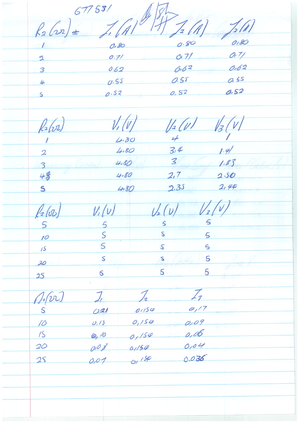 GTT531
R2(Ω) = I1(A) I2(A) I3(A)
1 0.80 0.80 0.80
2 0.71 0.71 0.71
3 0.62 0.62 0.62
4 0.55 0.55 0.55
5 0.52 0.52 0.52
R2(Ω) V1(V) V2(V) V3(V)
1 4.80 4 1
2 4.80 3.4 1.41
3 4.80 3 1.83
4 4.80 2.7 2.30
5 4.80 2.35 2.44
R2(Ω) V1(V) V2(V) V3(V)
5 5 5 5
10 5 5 5
15 5 5 5
20 5 5 5
25 5 5 5
R1(Ω) I1 I2 I3
5 0.154 0.17
10 0.13 0.154 0.09
15 0.154 0.06
20 0.08 0.154 0.04
25 0.07 0.154 0.036